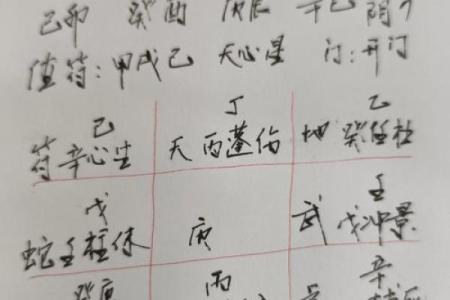 己卯 癸酉 庚辰 辛巳 阴
值符:甲戌己 天心星 门:开门
己 丁 乙
符辛心生 天丙蓬伤 地癸任杜
戊 壬
蛇壬柱休 庚 武戊冲景
癸庚 丙 辛